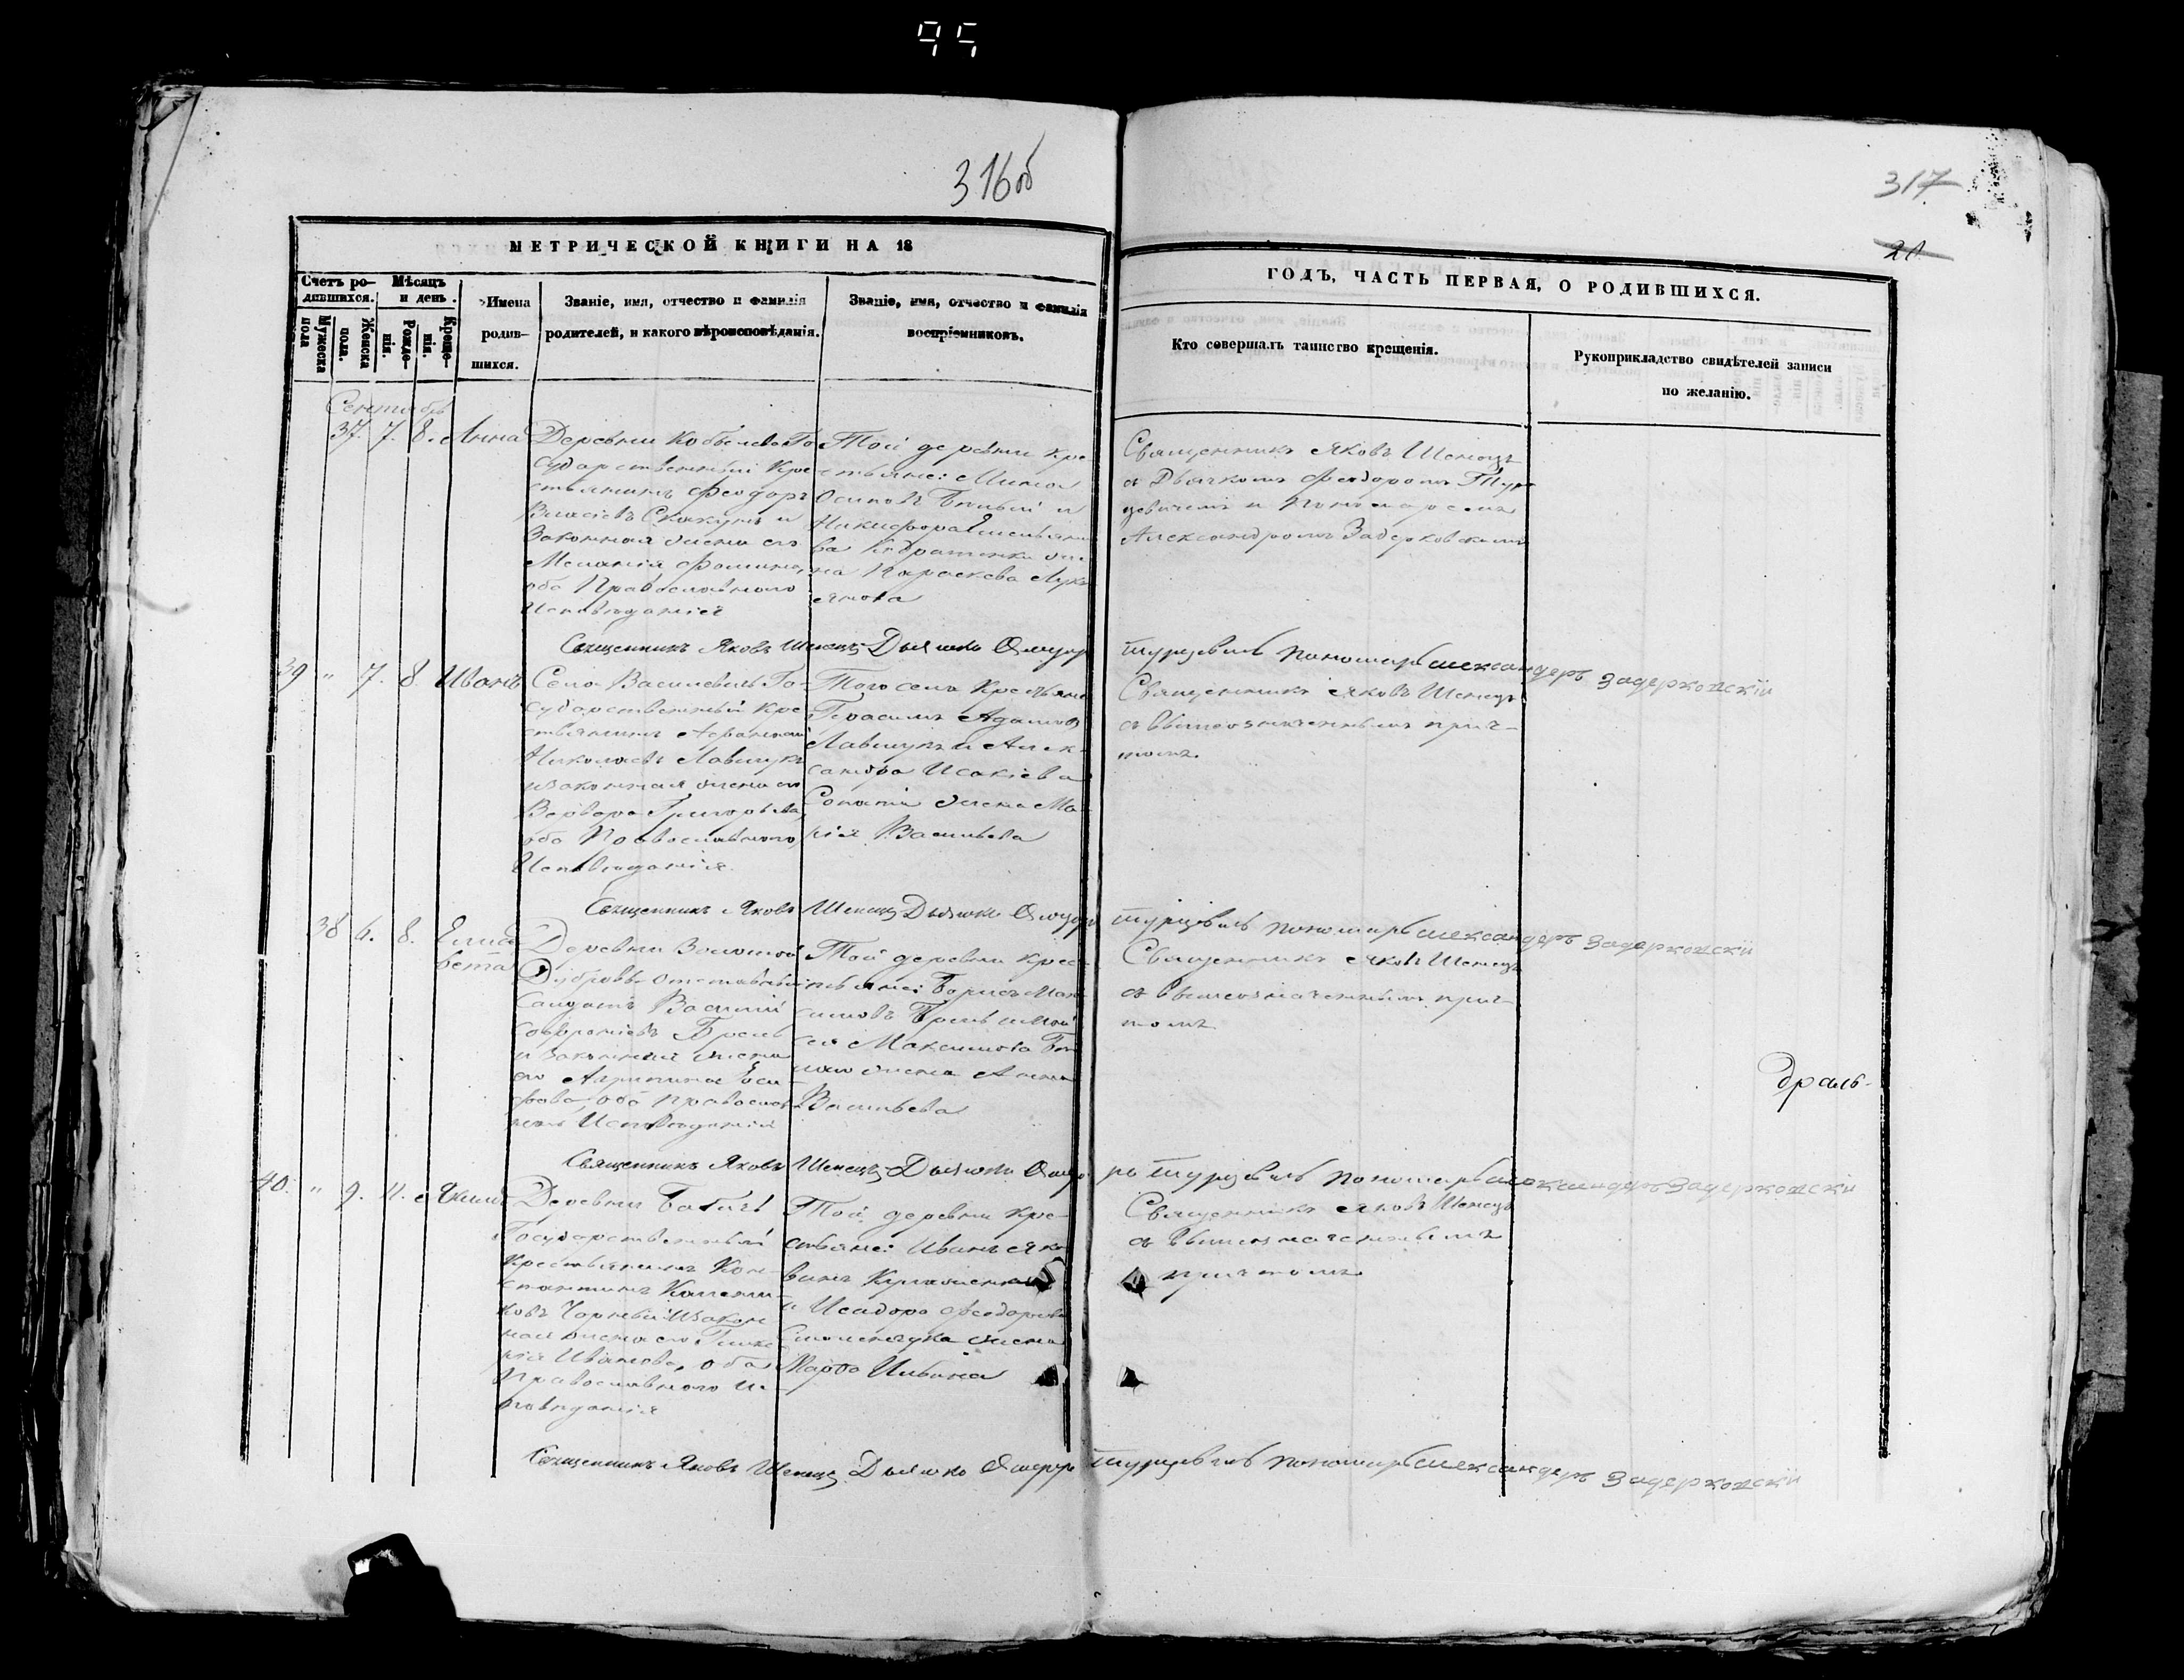 95
316об
317
20
МЕТРИЧЕСКОЙ КНИГИ НА 18
ГОДЪ, ЧАСТЬ ПЕРВАЯ, О РОДИВШИХСЯ.
Счетъ ро-
дившихся.
Мужеска
пола
Женска
пола.
Мѣсяцъ
и день.
Рожде-
нія.
Креще-
нія.
Имена
родив-
шихся.
Званіе, имя, отчество и фамилія
родителей, и какого вѣроисповѣданія.
Званіе, имя, отчество и фамилія
воспріемниковъ.
Кто совершалъ таинство крещенія.
Рукоприкладство свидѣтелей записи
по желанію.
Сентябрь
37. 7. 8. Анна
Деревни Кобылева Го-
сударственный Кре-
стьянинъ Феодоръ
Власіевъ Скакунъ и
Законная жена его
Меланія Фомина,
оба Православнаго
Исповѣданія
Той деревни кре-
стьяне:
Осиповъ и
Никифора Емельяно
ва жe
на Параскева Лукь
янова
Священникъ Яковъ Шенецъ
съ Дьячкомъ Феодоромъ Тур
цевичемъ и Пономаремъ
Александромъ Задерковскимъ
Священникъ Яковъ Шенецъ Дьячокъ Ѳеодоръ Турцевичъ Пономарь Александеръ Задерковскій
39 " 7. 8. Иванъ
Села Василевичъ Го-
сударственный Кре
стьянинъ Афанасій
Николаевъ Лавшукъ
и законная жена его
Варвара Григорьева
оба Православнаго
Исповѣданія.
Того села Крестьяне
Герасимъ Адамовъ
Лавшукъ и Алек-
сандра Исакіева
жена Ма
рія Васильева
Священникъ Яковъ Шенецъ
съ вышеозначеннымъ прич-
томъ.
Священникъ Яковъ Шенецъ Дьячокъ Ѳеодоръ Турцевичъ Пономарь Александеръ Задерковскій
38 6. 8. Елиса
вета
Деревни Золотой
Дубровы отставный
Солдатъ Василій
Софроніевъ
и Законная жена
его Агрипина Іоси
фова, оба Православ
наго Исповѣданія
Той деревни Крес-
тьяне: Борисъ Мак
симовъ и Мои
сея Максимова
жена Анна
Васильева
Священникъ Яковъ Шенецъ
съ вышеозначеннымъ прич-
томъ
браль-
Священникъ Яковъ Шенецъ Дьячокъ Ѳеодоръ Турцевичъ Пономарь Александеръ Задерковскій
40. " 9. 11. Якимъ
Деревни Бабичъ
Государственный
Крестьянинъ Кон-
стантинъ
ковъ Чорный и закон
ная жена его Глике
рія Иванова, оба
Православнаго И-
сповѣданія
Той деревни Кре-
стьяне: Иванъ Яко
и Исадора Феодорова
жена
Марфа Ильина
Священникъ Яковъ Шенецъ
съ вышеозначеннымъ
причтомъ
Священникъ Яковъ Шенецъ Дьячокъ Ѳеодоръ Турцевичъ Пономарь Александеръ Задерковскій